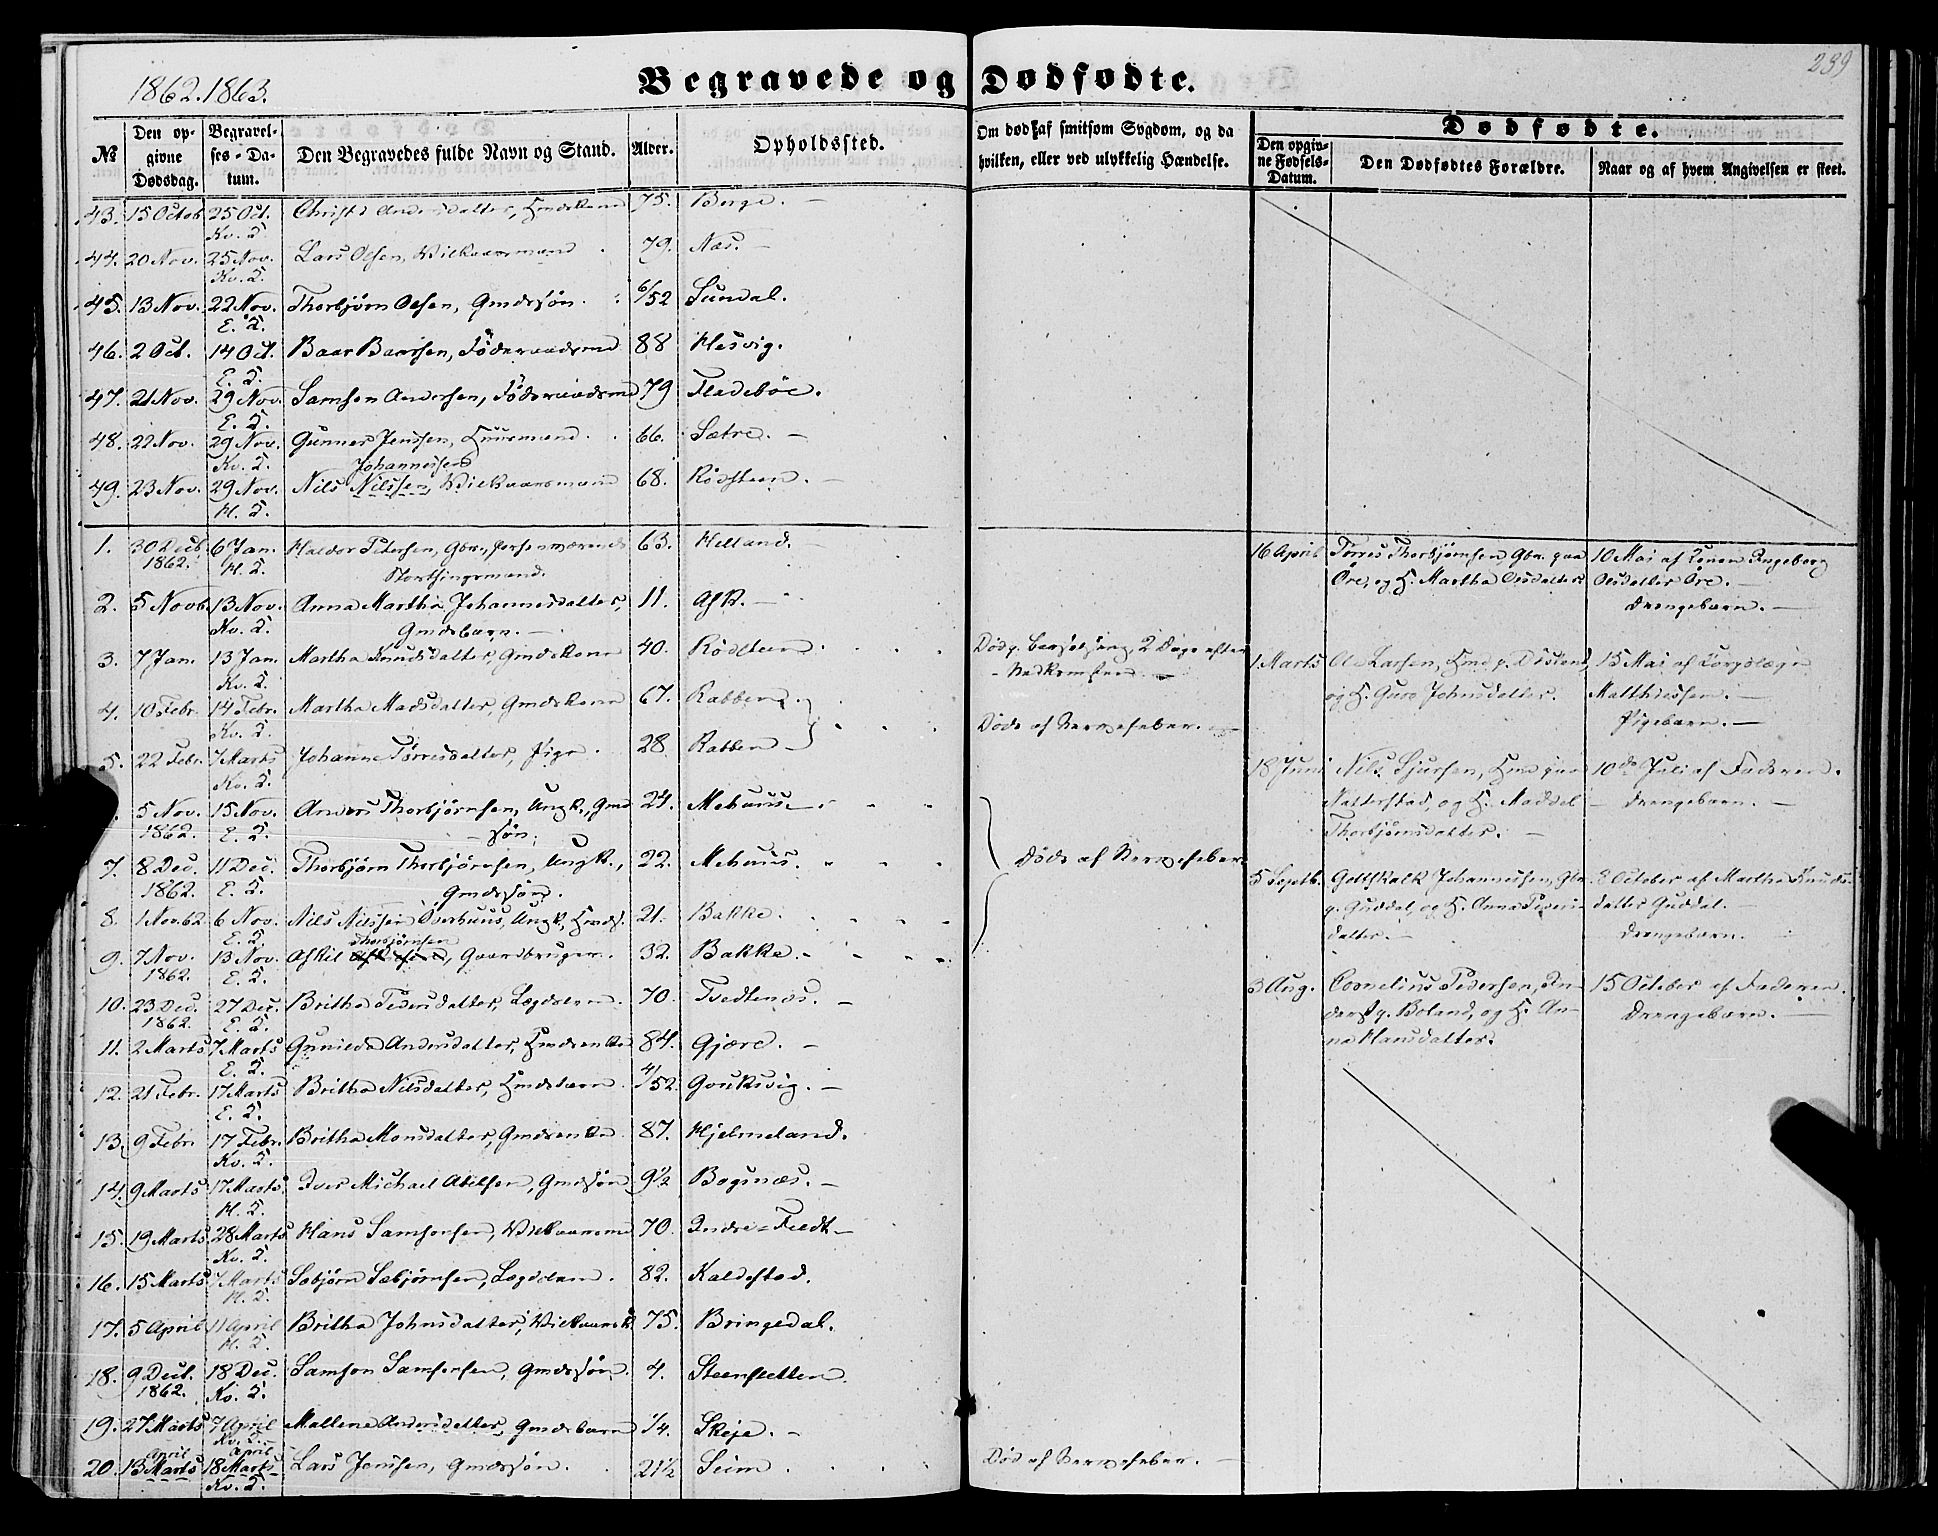 239
1862. 1863.
Begravede og Dødfødte.
№
Den opgivne Dødsdag.
Begravelses-Datum.
Den Begravedes fulde Navn og Stand.
Alder.
Opholdssted.
Om død af smitsom Sygdom, og da hvilken, eller ved ulykkelig Hændelse.
Dødfødte.
Den opgivne Fødsels-Datum.
Den Dødfødtes Forældre.
Naar og af hvem Angivelsen er skeet.
43. 15 Octob. 25 Oct. Andersdatter, 75. Berge. —
Kv. S.
44. 20 Nov. 25 Nov. Lars Olsen, Vilkaarsmand 79. Næs. —
Kv. S.
45. 13 Nov. 22 Nov. Thorbjørn Olsen, Gmdssøn. 6/52 Sundal.
E. S.
46. 2 Oct. 14 Oct. Baar Baarsen, Føderaadsmd 88 Hesvig.
E. S.
47. 21 Nov. 29 Nov. Samson Andersen, Føderaadsmd 79 Fladebøe.
E. S.
48. 22 Nov. 29 Nov. Gunnar Jenssen, Huusmand. 66. Sætre. —
Kv. S.
Johannessen
49. 23 Nov. 29 Nov. Nils Nilssen, Vilkaarsmand 68. Rødsteen. —
H. S.
1. 30 Decb. 6 Jan. Haldor Petersen, Gbr., 63. Helland. —
1862. H. S. Storthingsmand.
2. 5 Novb. 13 Nov. Anna Martha Johannesdatter, 11. Ask. —
Kv. S. Gmdsbarn. —
3. 7 Jan. 13 Jan. Martha Knudsdatter, Gmdskone 40. Rødsteen
Kv. S.
4. 10 Febr. 14 Febr. Martha Madsdatter, Gmdskone 67. Rabben.
Kv. S.
5. 22 Febr. 7 Marts Johanne Tørresdatter, Pige. 28. Rabben —
Kv. S.
5 Nov. 15 Nov. Anders Thorbjørnsen, Ungk., Gmd 24. Mehuus. —
1862. E. S. — søn.
7. 8 Dec. 11 Dec. Thorbjørn Thorbjørnsen, Ungk., 22. Mehuus.
1862. E. S. Gmdssøn.
8. 1 Nov. 62 6 Nov. Nils Nilssen Overhuus, Ungk., 21. Bakke.
E. S. Thorbjørnsen
9. 7 Nov. 13 Nov. Askil Gaardbruger. 32. Bakke.
1862. E. S.
10. 23 Dec. 27 Dec. Britha Pedersdatter, Lægdslem. 70. Tvedtenæs. —
1862. E. S.
11. 2 Marts 7 Marts Gunilde Andersdatter, Hmdsenke 84. Gjære. —
E. S.
12. 21 Febr. 17 Marts Britha Nilsdatter, Hmdsbarn. 4/52. Gouksvig. —
E. S.
13. 9 Febr. 17 Febr. Britha Monsdatter, Gmdsenke. 87. Hjelmeland.
Kv. S.
14. 9 Marts 17 Marts Iver Michael Abelsen, Gmdssøn 9½ Bogsnæs. —
H. S.
15. 19 Marts 28 Marts Hans Samsonsen, Vilkaarsmd 70. Indre-Tvedt —
Kv. S.
16. 15 Marts 7 Marts Sæbjørn Sæbjørnsen, Lægdslem. 82. Kaldestad.
H. S.
17. 5 April 11 April Britha Johnsdatter, Vilkaarsk. 75. Bringedal.
H. S.
18. 9 Decb. 18 Dec. Samson Samsonsen, Gmdssøn. 4. Steensletten
1862. Kv. S.
19. 27 Marts 7 April Mallene Andersdatter, Gmdsbarn ¼. Skeje. —
Kv. S.
April April
20. 13 Marts 18 Marts Lars Jenssen, Gmdssøn. 21½ Seim
Kv. S.
Død p. Barselseng, 2 Dage efter
— Nedkomsten. —
Døde af Nervefeber. —
Døde af Nervefeber.
Død af Nervefeber. —
16 April Tørres Thorbjørnsen, Gbr. paa 10 Mai af Konen Ingeborg
Øre, og H. Martha Olsdatter Olsdatter Øre. —
Drengebarn. —
1 Marts Ole Larsen, Hmd p. 15 Mai af Korpslæge
og H. Guro Johnsdatter. Matthiessen. —
Pigebarn. —
18 Juni Nils Sjursen, Hmd paa 10de Juli af Faderen.
Natterstad, og H. Maddel — Drengebarn. —
Thorbjørnsdatter. —
5 Septb. Gottskalk Johannessen, Gbr 8 October af Martha Knuds-
p. Guddal, og H. Anna Peders- datter Guddal. —
datter. — Drengebarn. —
3 Aug. Cornelius Pedersen, In- 15 October af Faderen.
derst p. Boland, og H. An- Drengebarn. —
na Hansdatter.